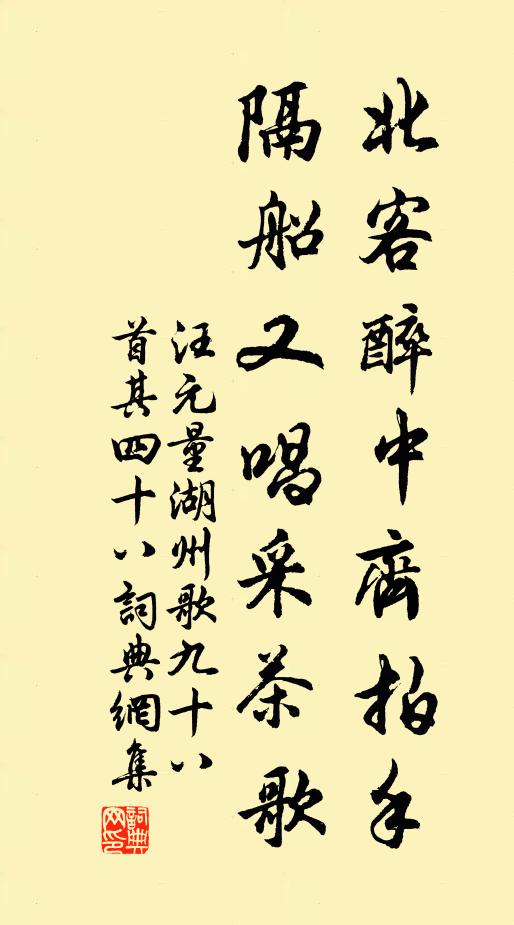 北客醉中齊拍手
隔船又唱采茶歌
汪元量湖州歌九十八
首其四十八詞典網集
詞典
網印